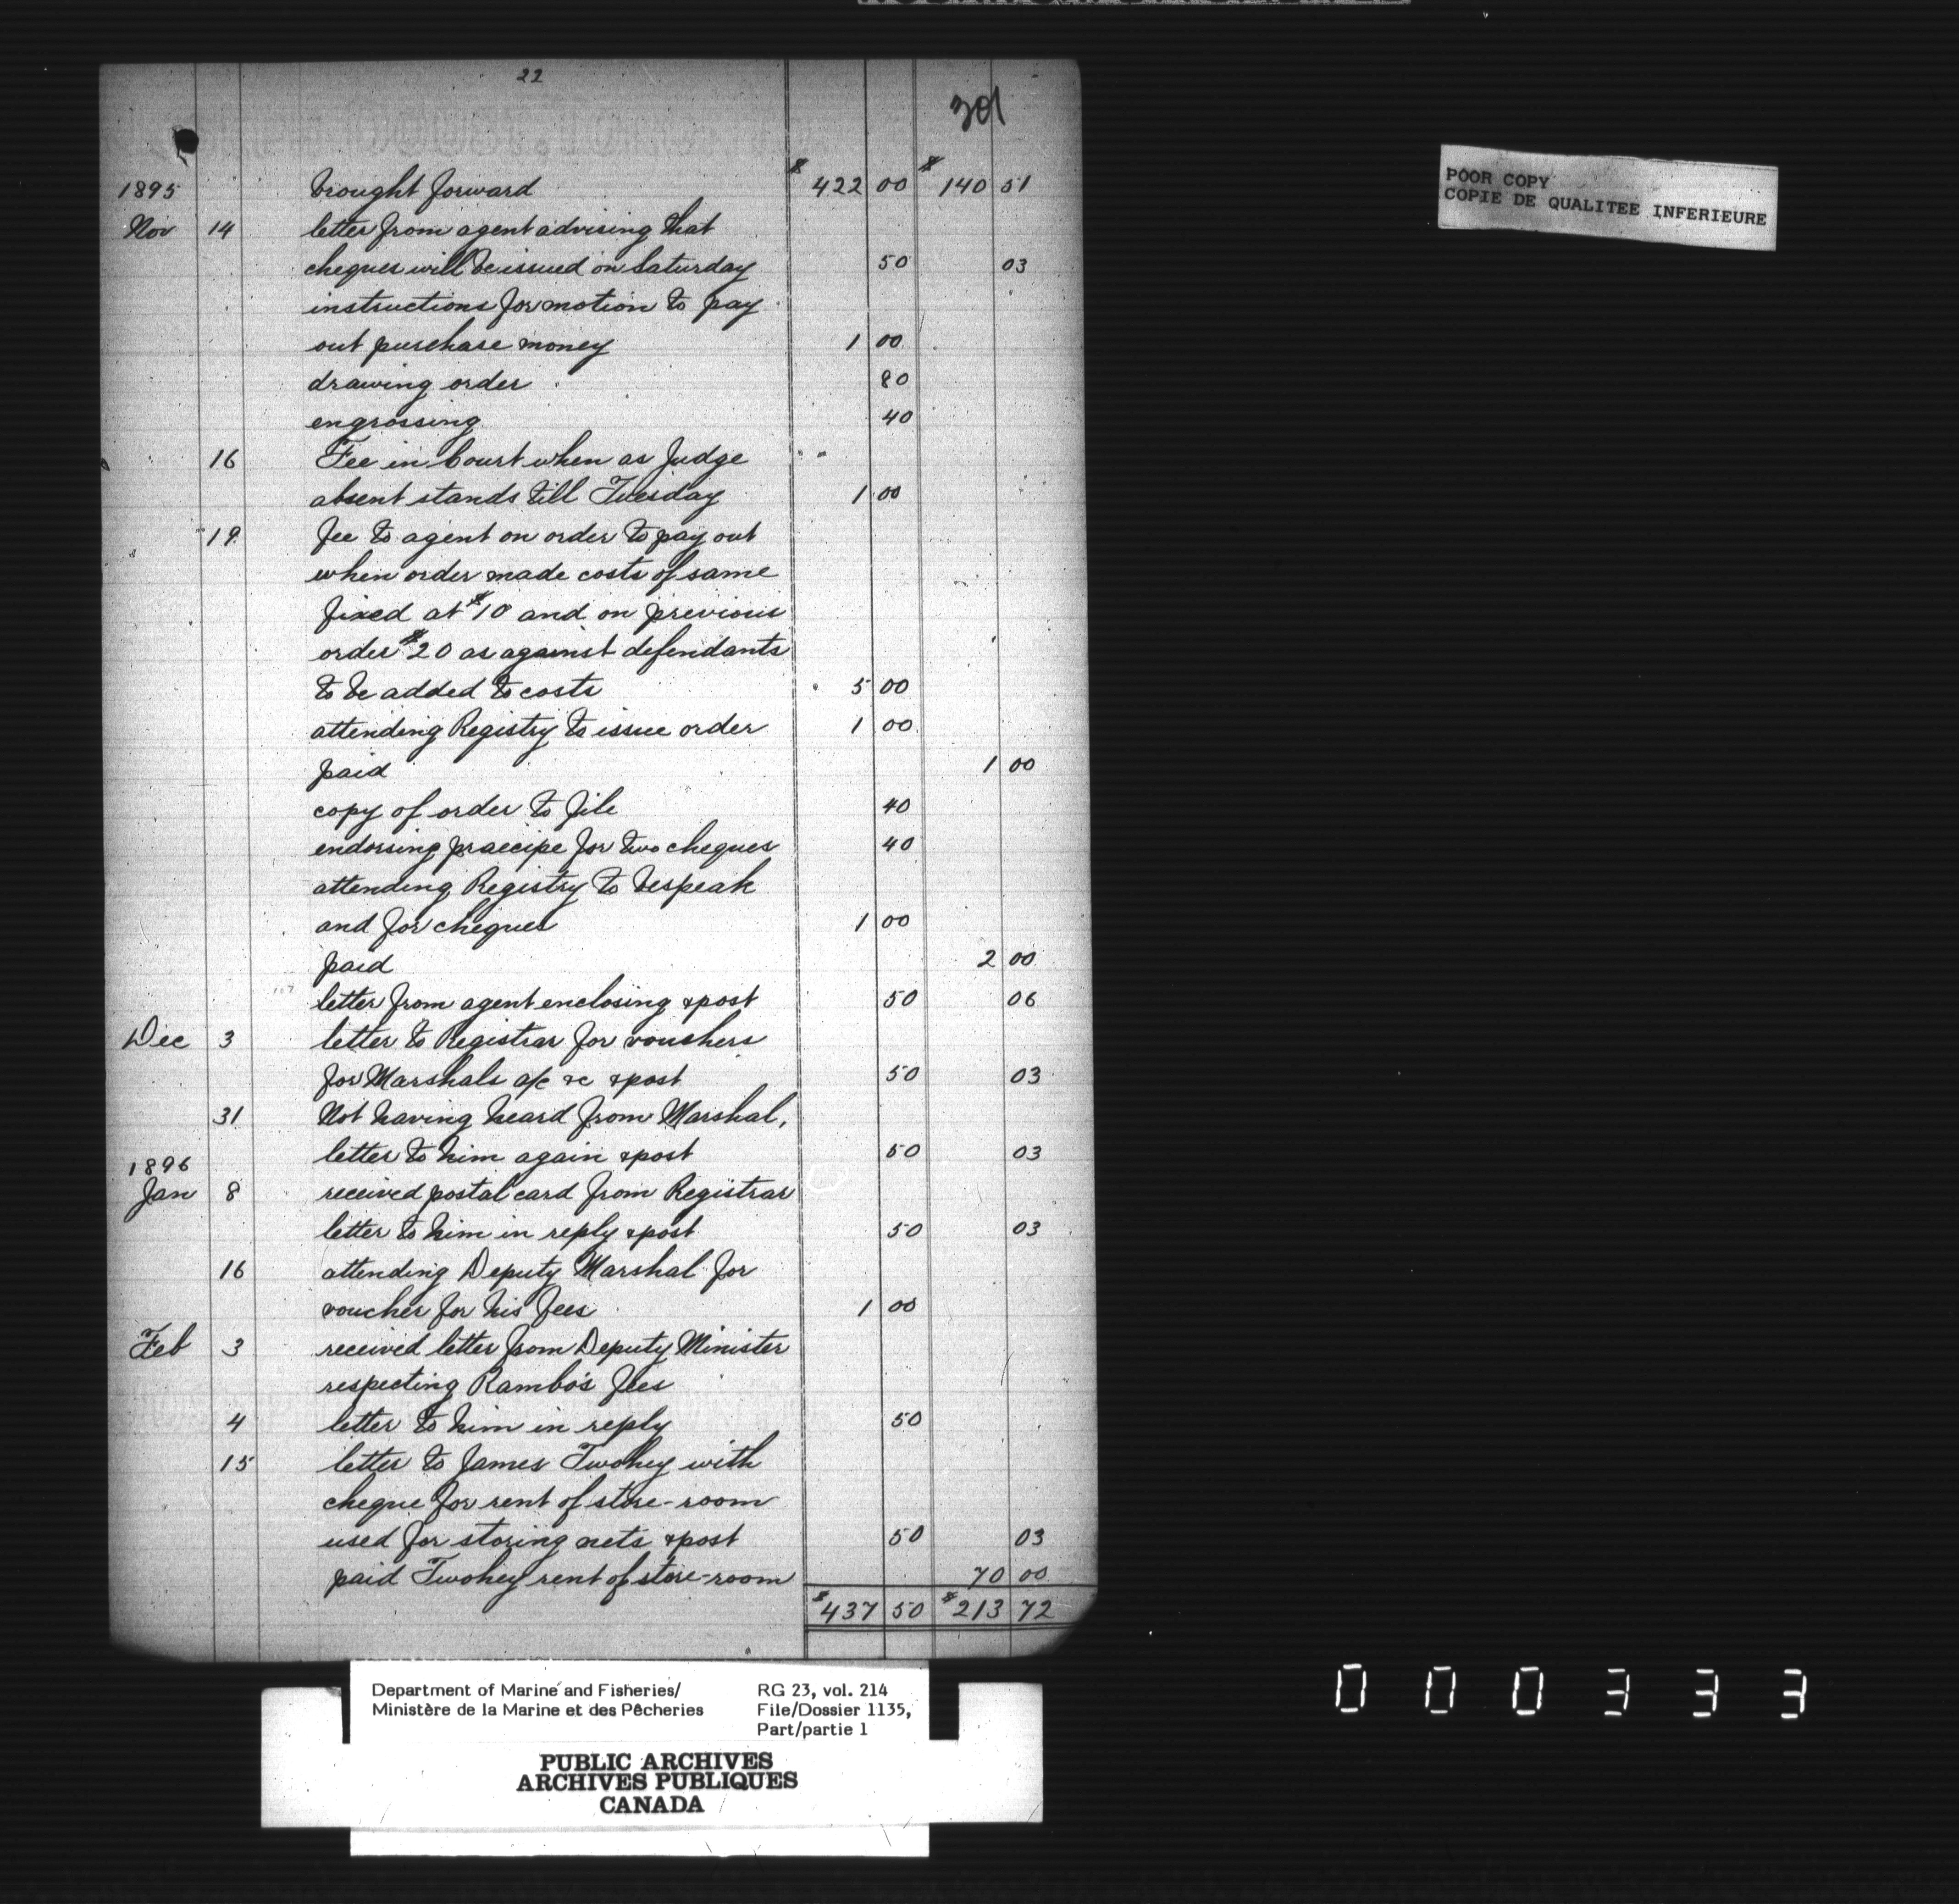 22
301
1895 brought forward $ 422 00 $ 140 51
Nov 14 letter from agent advising that
cheques will be issued on Saturday 50 03
instructions for motion to pay
out purchase money 1 00
drawing order 80
engrossing 40
16 Fee in Court when as Judge
absent stands till Tuesday 1 00
19 fee to agent on order to pay out
when order made costs of same
fixed at $10 and on previous
order $20 as against defendants
to be added to costs 5 00
attending Registry to issue order 1 00
paid 1 00
copy of order to file 40
endorsing praecipe for two cheques 40
attending Registry to bespeak
and for cheques 1 00
paid 2 00
letter from agent enclosing & post 50 06
Dec 3 letter to Registrar for vouchers
for Marshals a/c &c & post 50 03
31 Not having heard from Marshal,
letter to him again & post 50 03
1896
Jan 8 received postal card from Registrar
letter to him in reply & post 50 03
16 attending Deputy Marshal for
voucher for his fees 1 00
Feb 3 received letter from Deputy Minister
respecting Rambo's fees
4 letter to him in reply 50
15 letter to James Twohey with
cheque for rent of store-room
used for storing nets & post 50 03
paid Twohey rent of store-room 70 00
$437 50 $213 72
POOR COPY
COPIE DE QUALITEE INFERIEURE
Department of Marine and Fisheries/ RG 23, vol. 214
Ministère de la Marine et des Pêcheries File/Dossier 1135,
Part/partie 1
PUBLIC ARCHIVES
ARCHIVES PUBLIQUES
CANADA
000333